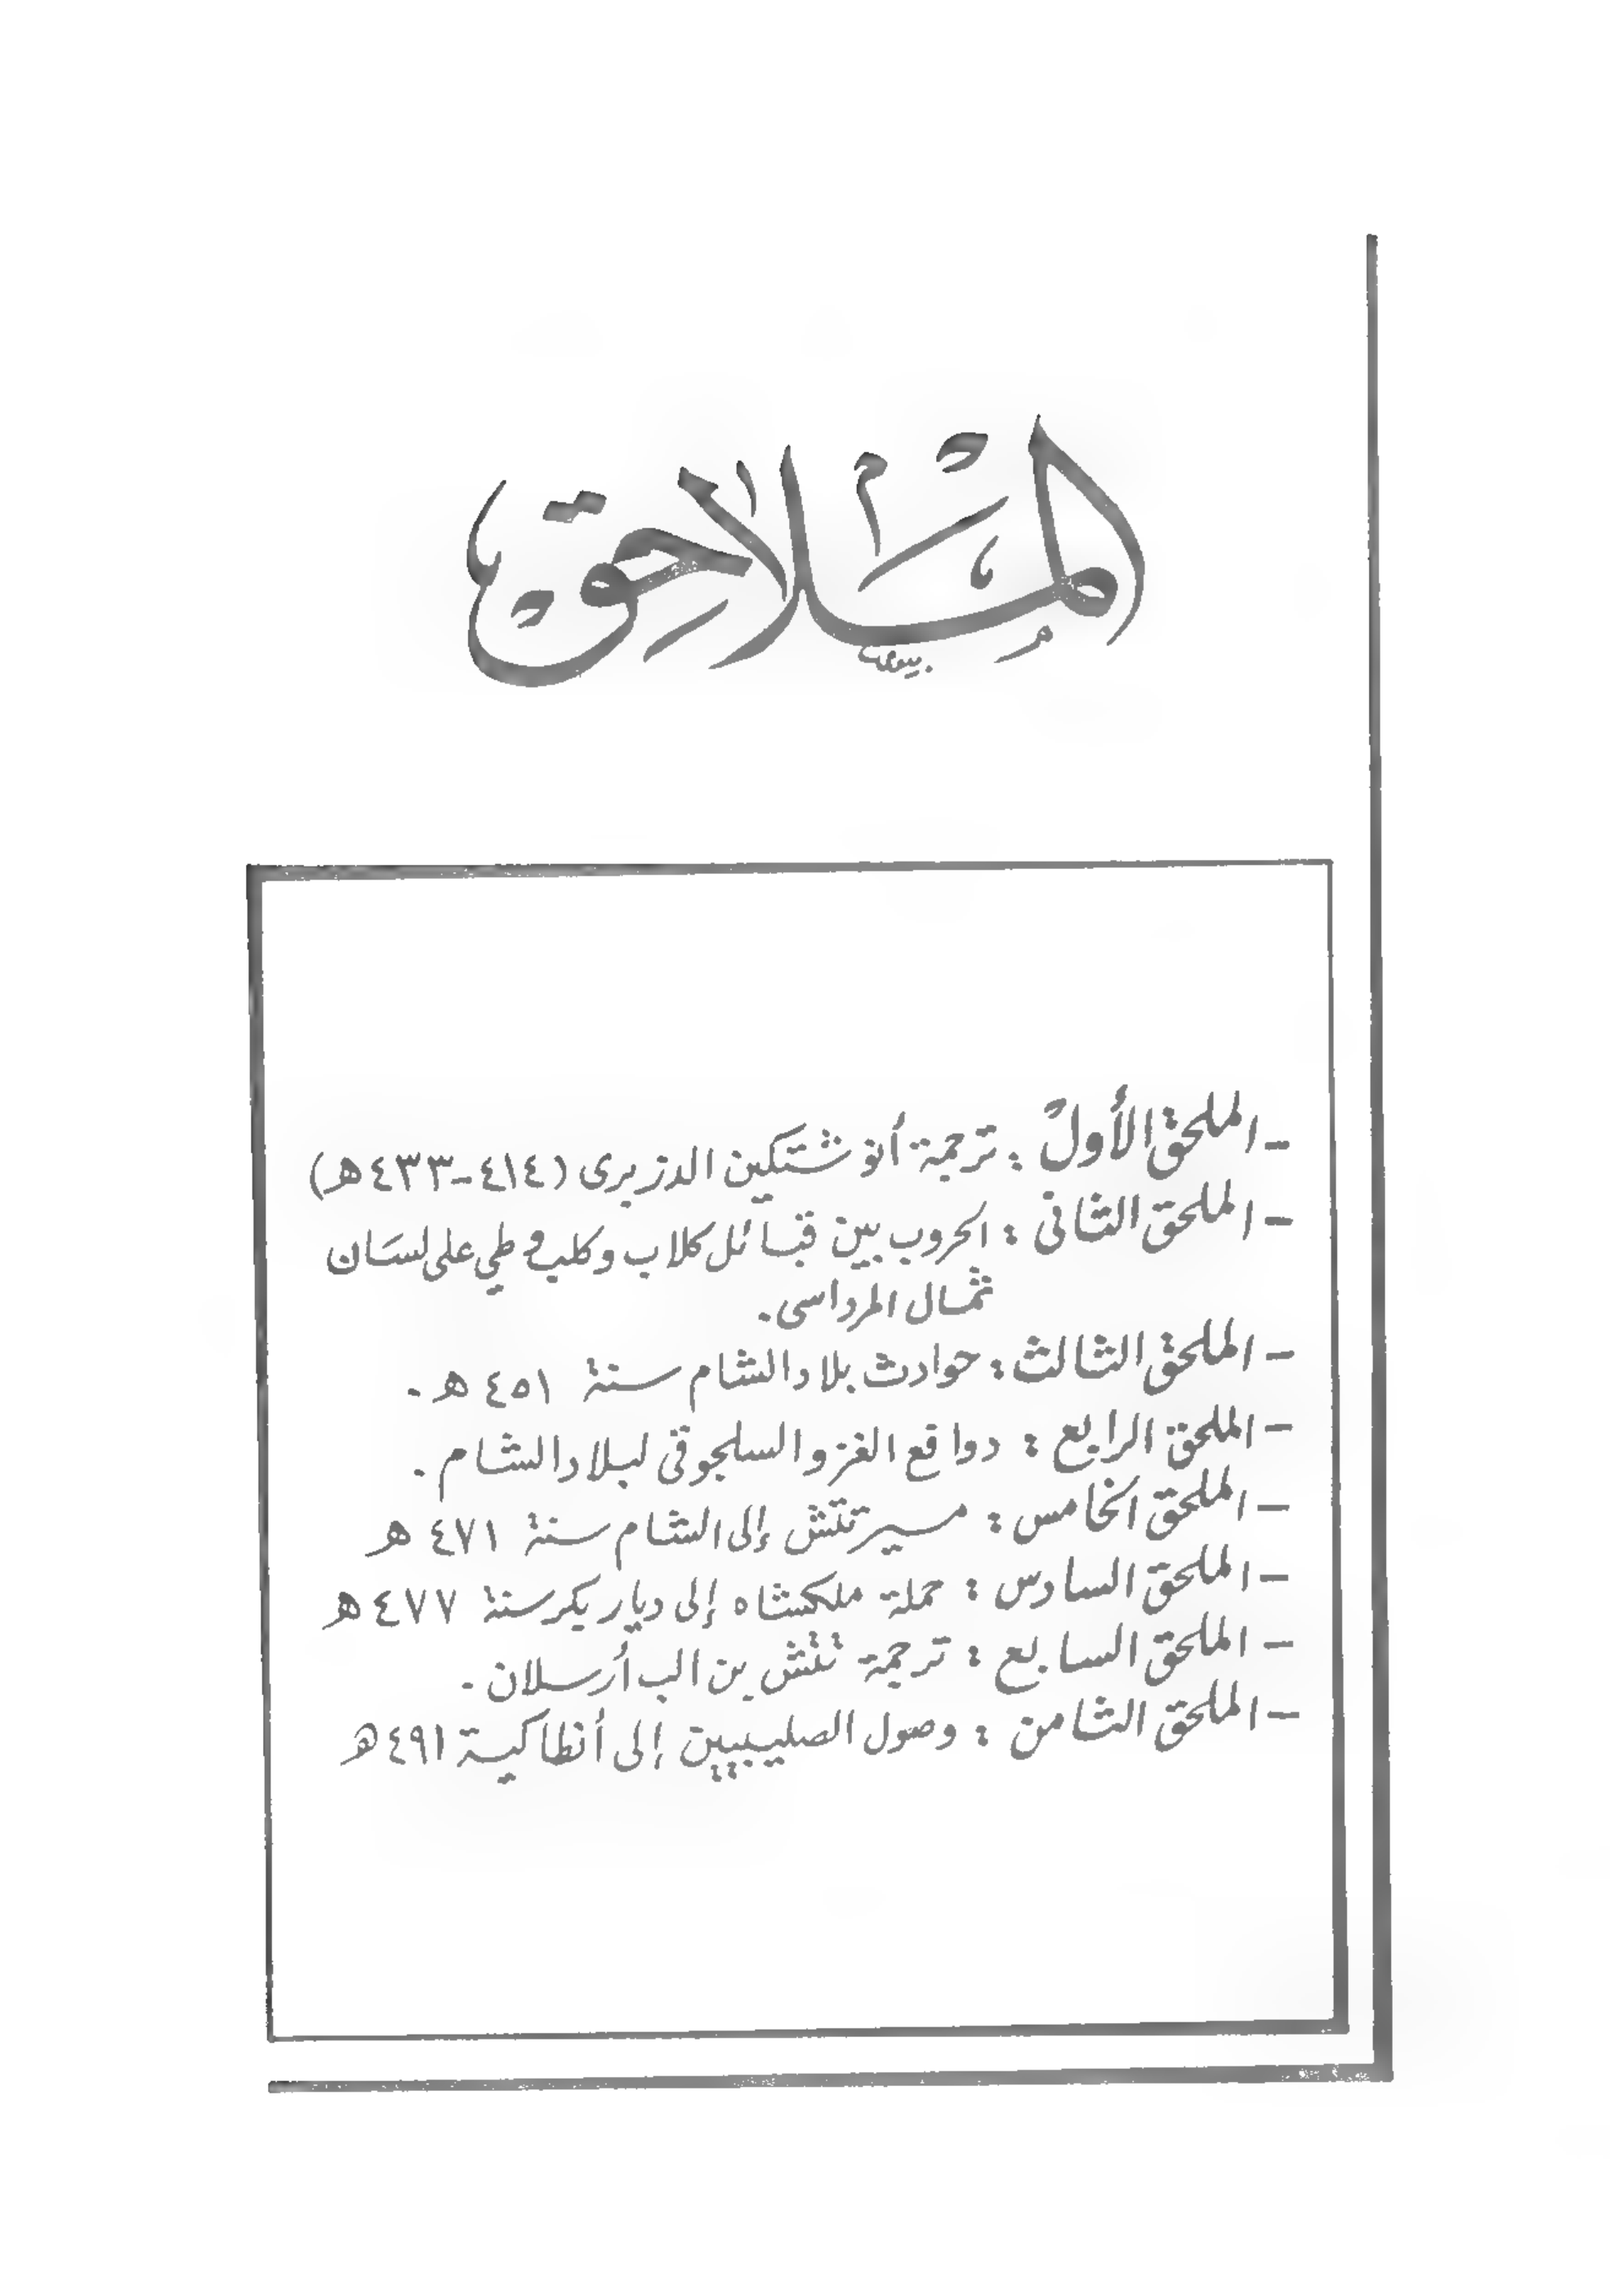 الملاحق
- الملحق الأول : ترجمة أنو شتكين الدزبرى (٤١٤-٤٣٣ه)
- الملحق الثانى : الحروب بين قبائل كلاب وكلب و طي على لسان
ثمال المرداسى.
- الملحق الثالث : حوادث بلاد الشام سنة ٤٥١ ه.
- الملحق الرابع : دوافع الغزو السلجوقى لبلاد الشام.
- الملحق الخامس : مسير تتش إلى الشام سنة ٤٧١ ه
- الملحق السادس : حملة ملكشاه إلى ديار بكر سنة ٤٧٧ ه
- الملحق السابع : ترجمة تتش بن الب أرسلان.
- الملحق الثامن : وصول الصليبيين إلى أنطاكية ٤٩١ ه